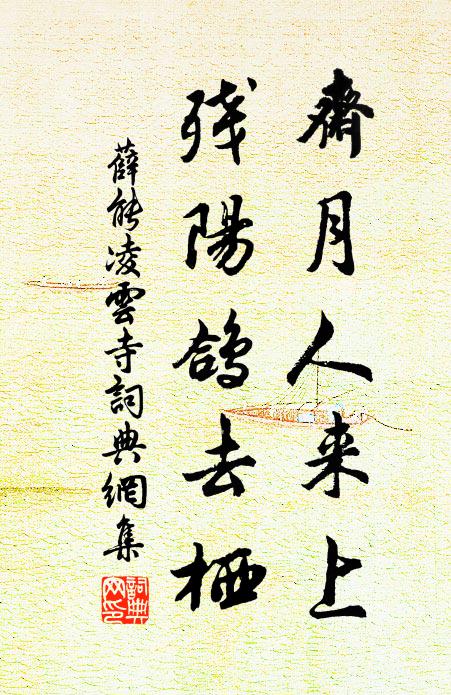 齋月人来上
残陽鴿去栖
薛能凌雲寺詞典網集
詞典网印